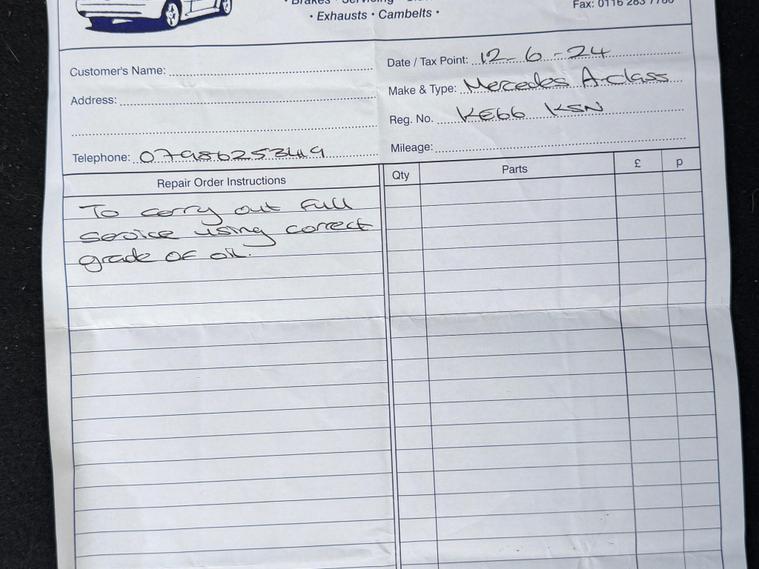 Brakes • Servicing •
• Exhausts • Cambelts •
Fax: 0116 283 7780
Customer's Name:
Address:
Telephone: 07986253449
Date / Tax Point: 12-6-24
Make & Type: Mercedes A-class
Reg. No. KE66 KSN
Mileage:
Repair Order Instructions
Qty Parts £ p
To carry out full
service using correct
grade of oil.